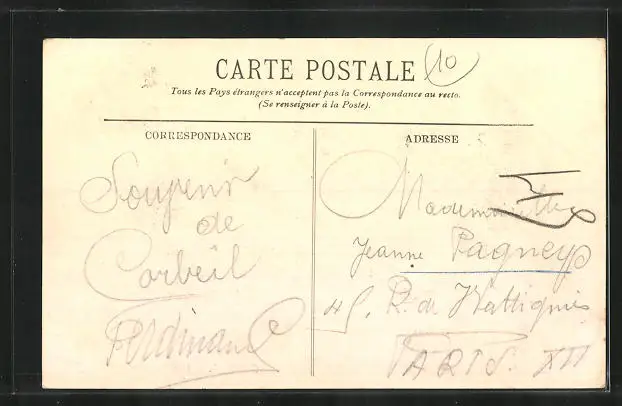 CARTE POSTALE
10
Tous les Pays étrangers n'acceptent pas la Correspondance au recto.
(Se renseigner à la Poste).
CORRESPONDANCE
Souvenir
de
Corbeil
Ferdinand
ADRESSE
Mademoiselle
Jeanne Pagney
45, R. de Wattignies
PARIS. XII